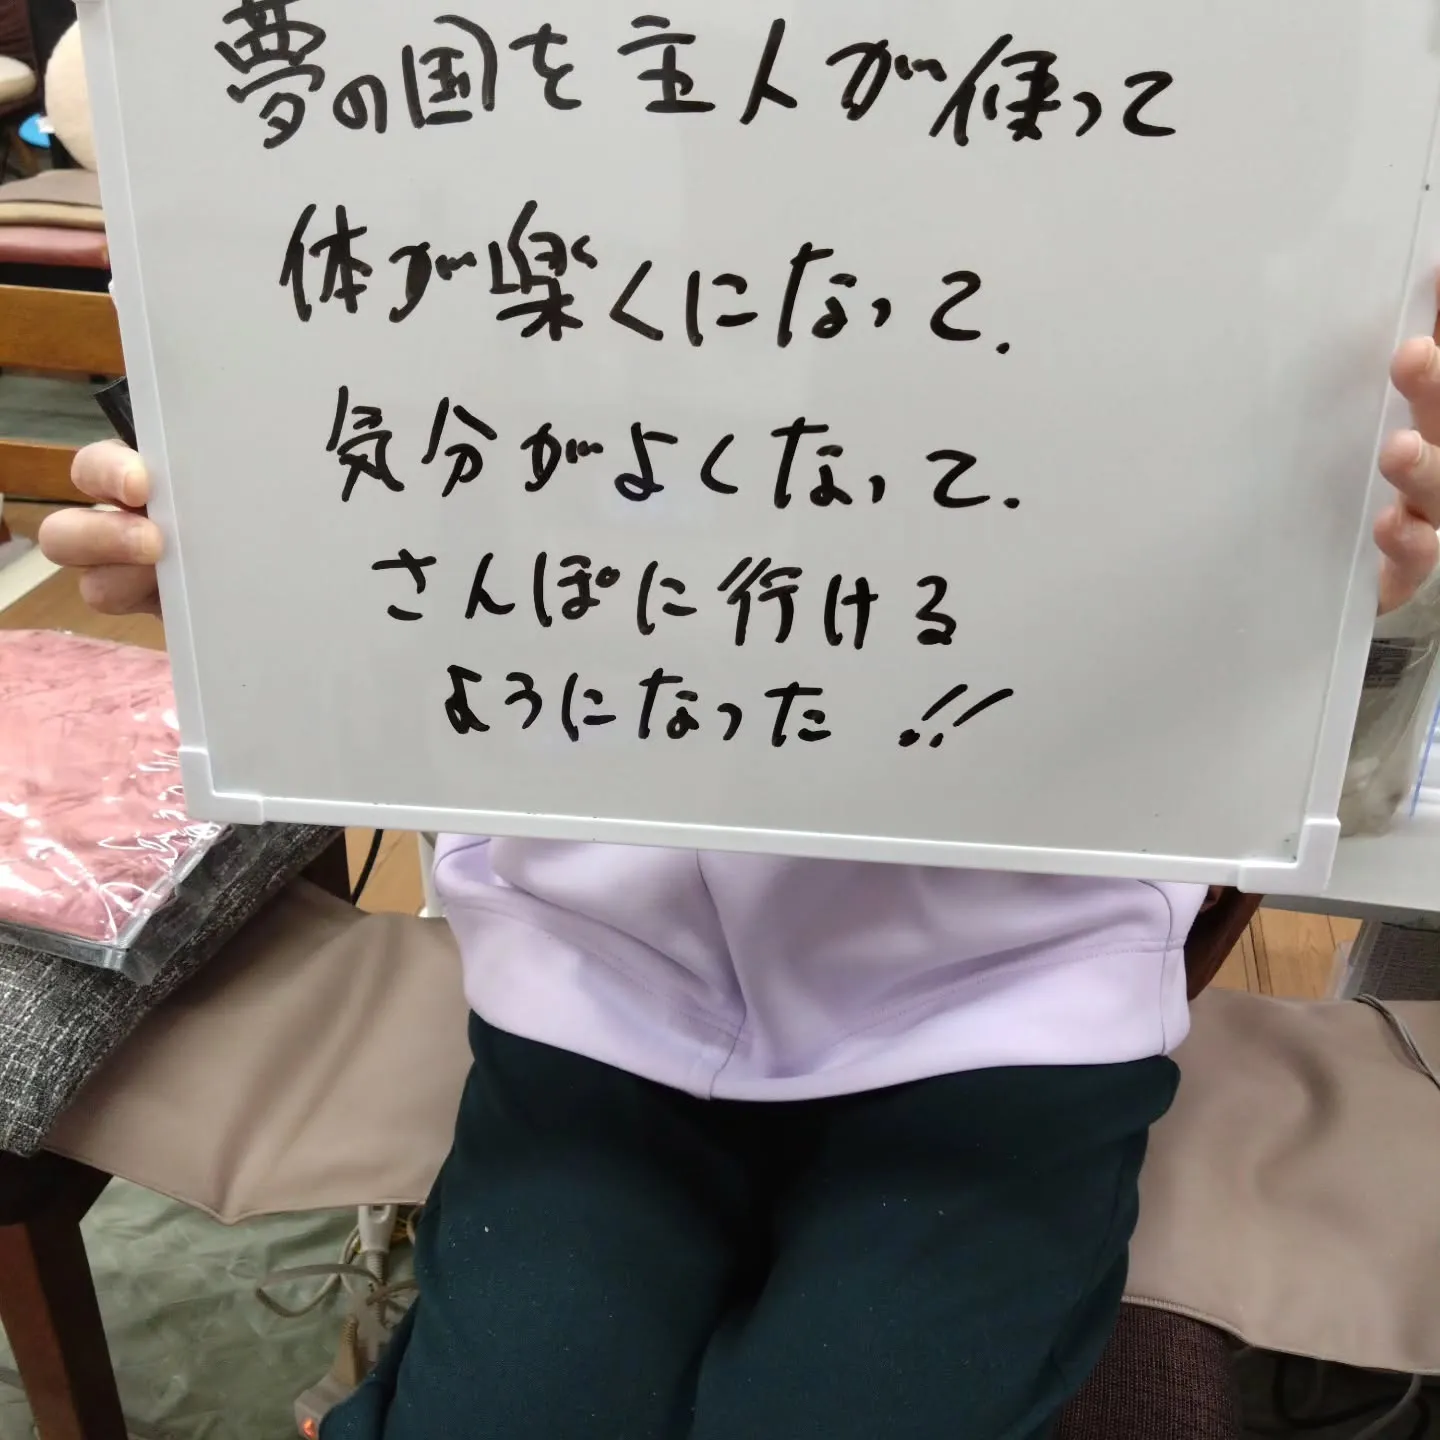 夢の国を主人が使って
体が楽くになって.
気分がよくなって.
さんぽに行ける
ようになった!!